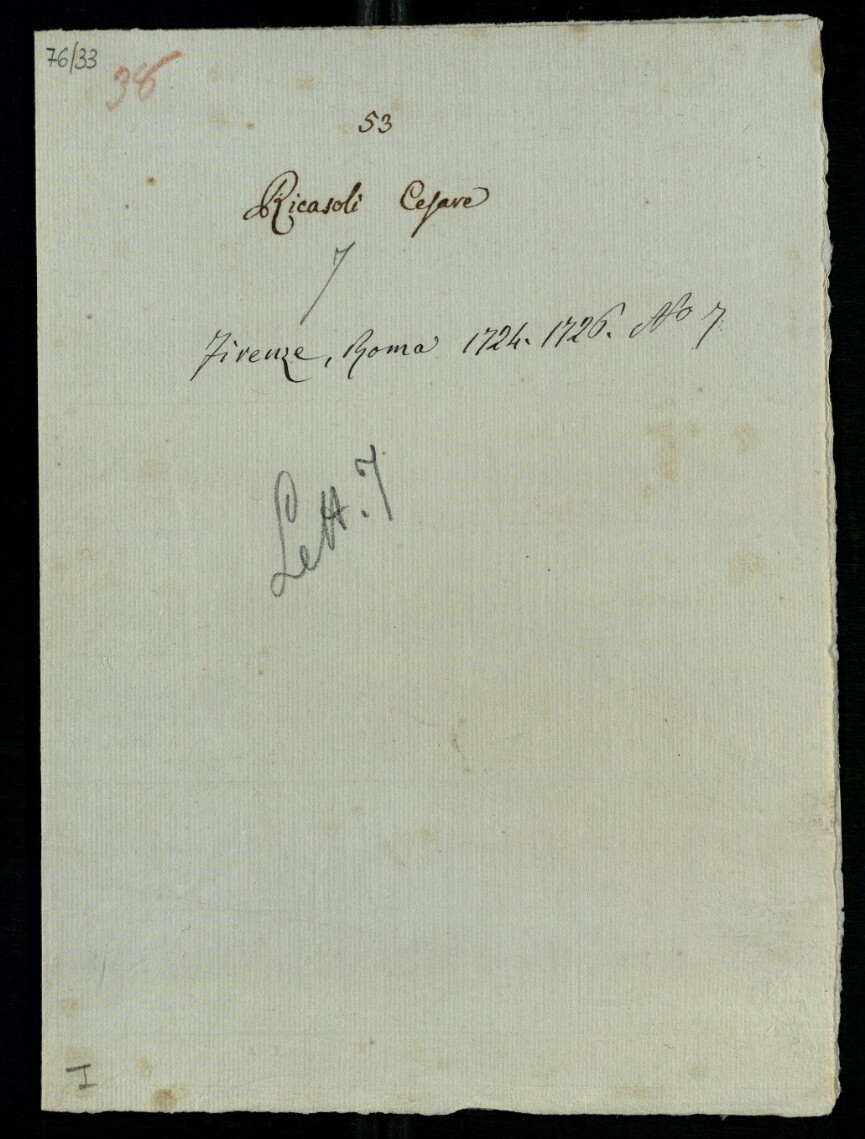 76/33
38
53
Ricasoli Cesare
7
Firenze, Roma 1724. 1726. No 7.
Lett. 7
I